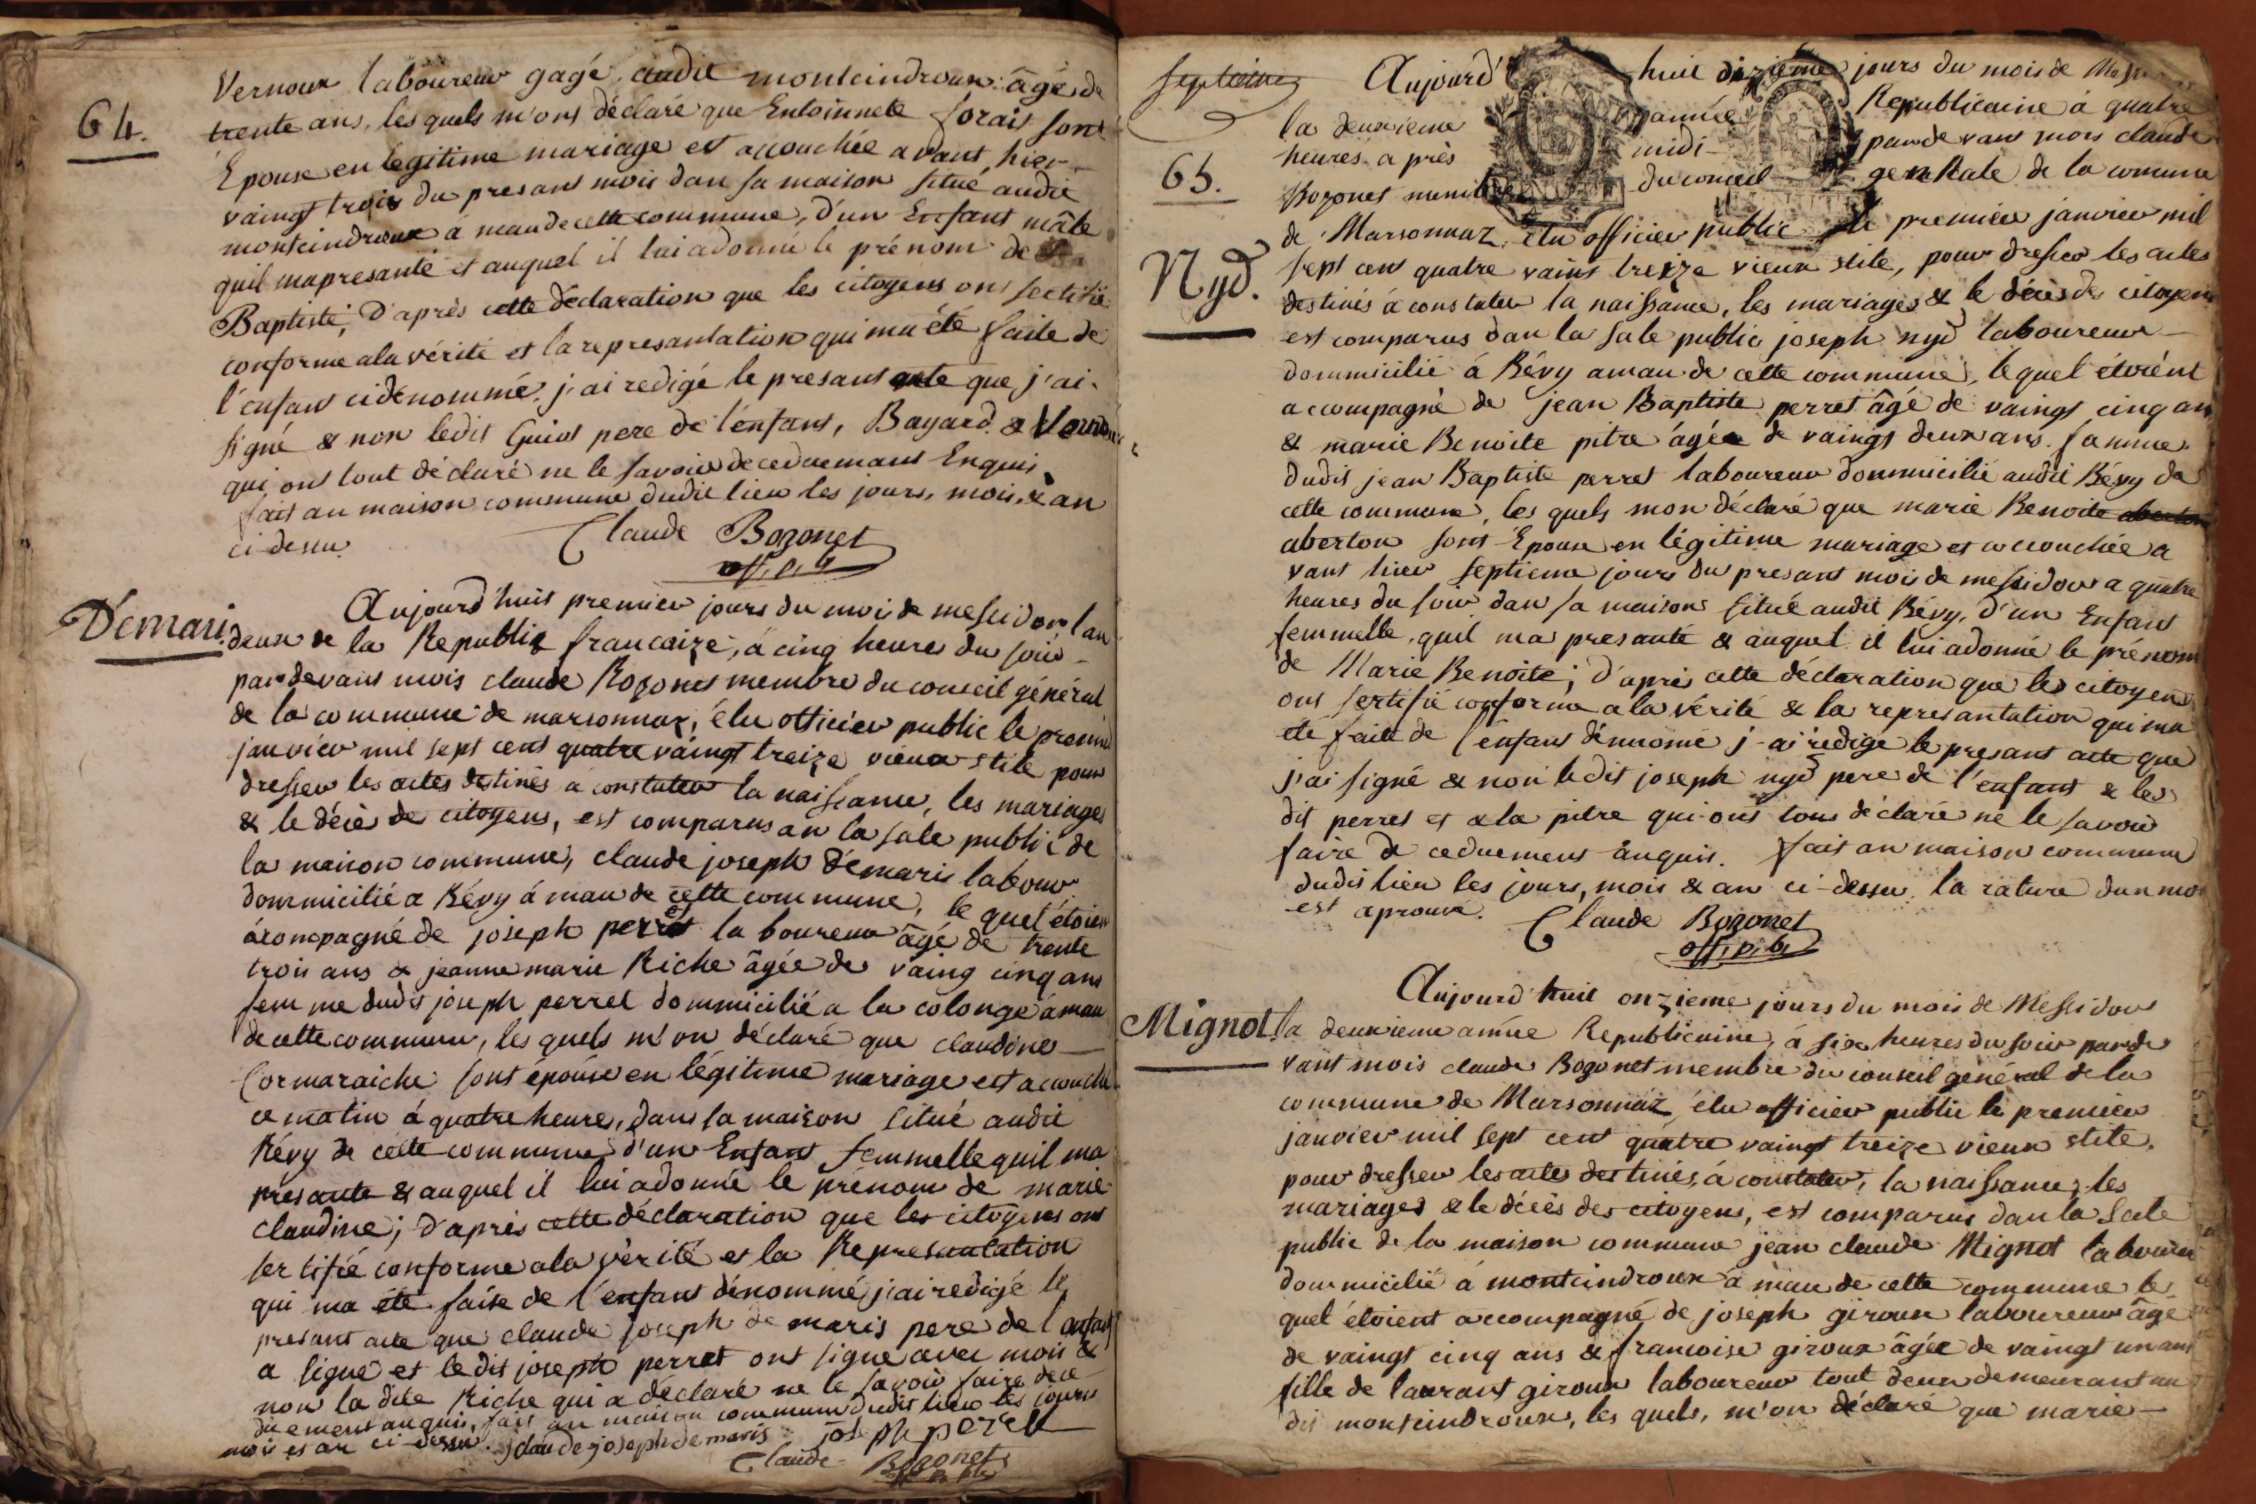 64.
Vernoux laboureur gagé audit montcindroux âgé de
trente ans, les quels m'ons déclaré que Entoinnete forais sont
Epouse en legitime mariage et accouchée avant hier
vaingt trois du presans mois dan sa maison situé audit
montcindroux á mau de cette commune, d'un Enfant mâle
quil ma presanté et auquel il lui a donné le prénom de
Baptiste, D'après cette déclaration que les citoyens ons sertifié
conforme a la vérité et la represantation qui ma été faite de
l'enfans ci dénommé, j'ai redigé le presans acte que j'ai
signé & non ledit Guiot pere de l'enfans, Bayard & Vernoux
qui ons tout déclaré ne le savoir de ceduemans Enquis
fait an maison commune dudit lieu les jours, mois, & an
ci dessu.
Claude Bozonet
off. p. b
Démari.
Aujourd'huit premier jours du mois de messidor l'an
deux de la Republiq francaize, á cinq heures du soir
pardevans mois claude Bozonet membre du conseil général
de la commune de marsonnaz, élu officier public le premier
janvier mil sept cens quatre vaingt treize vieux stile pour
dresser les actes destinés a constater la naissance, les mariages
& le décès de citoyens, est comparus an la sale public de
la maison commune, claude joseph démaris labour.
dommicilié a Bévy á mau de cette commune, le quel étoien
acompagné de joseph perret laboureur âgé de trente
trois ans & jeanne marie Riche âgée de vaing cinq ans
femme dudit joseph perret dommicilié a la colonge á mau
de cette commune, les quels m'on déclaré que claudine
Cormaraiche sont épouse en légitime mariage est accouchée
ce matin á quatre heure, dans sa maison situé audit
Bévy de cette commune d'un Enfant femmelle quil ma
presanté & auquel il lui a donné le prénom de marie
claudine; d'après cette déclaration que les citoyens ons
sertifié conforme a la vérité et la Represantation
qui ma été faite de l'enfans dénommé j'ai redigé le
presans acte que claude joseph de maris pere de l'enfans
a signé et le dit joseph perret ont signé avec mois &
non la dite Riche qui a déclaré ne le savoir faire de ce
duement anquis, fait an maison commun dudit lieu les jours
mois et an ci dessu. claude joseph demaris joseph peret
Claude Bozonet
off. p. b
septieme
65.
Nyd.
Aujourd'huit dizieme jours du mois de
la deuxieme année Republicaine á quatre
heures après midi pardevant mois claude
Bozonet membre du conseil generale de la comune
de Marsonnaz, élu officier public le premier janvier mil
sept cens quatre vains treize vieux stile, pour dresser les actes
destinés á constater la naissance, les mariages & le décès des citoyens
est comparus dan la sale public joseph nyd laboureur
dommicilié á Bévy a mau de cette commune, le quel étoient
accompagné de jean Baptiste perret âgé de vaingt cinq ans
& marie Benoite pitre âgée de vaingt deux ans famme
dudit jean Baptiste perret laboureur dommicilié audit Bévy de
cette commune, les quels mon déclaré que marie Benoite aberton
aberton sont Epouse en légitime mariage et accouchée a
vant hier septieme jours du presans mois de messidor a quatre
heures du soir dan sa maison situé audit Bévy, d'un Enfant
femmelle, quil ma presanté & auquel il lui a donné le prénom
de Marie Benoite; d'après cette déclaration que les citoyens
ons sertifié conforme a la vérité & la represantation qui ma
été faite de l'enfans dénnomé j'ai redigé le presant acte que
j'ai signé & non le dit joseph nyd pere de l'enfant & les
dit perret et a la pitre qui ons tous déclaré ne le savoir
faire de ceduemens ânquis. fait an maison commune
dudit lieu les jours, mois & an ci-dessu, la rature dun mot
est aprouvé.
Claude Bozonet
off. p. b.
Mignot.
Aujourd'huit onzieme jours du mois de Messidor
la deuxieme année Republicaine, á six heures du soir parde
vant mois claude Bozonet membre du conseil général de la
commune de Marsonnaz élu officier public le premier
janvier mil sept cent quatre vaingt treize vieux stile,
pour dresser les actes destinés, á constater, la naissance, les
mariages & le décès des citoyens, est comparus dan la sale
public de la maison commune jean claude Mignot laboureur
dommicilié á montcindroux á mau de cette commune le
quel étoient accompagné de joseph giroux laboureur âgé
de vaingt cinq ans & francoise giroux âgée de vaingt un ans
fille de laurant giroux laboureur tout deux demeurant au
dit montcindroux, les quels, m'on déclaré que marie